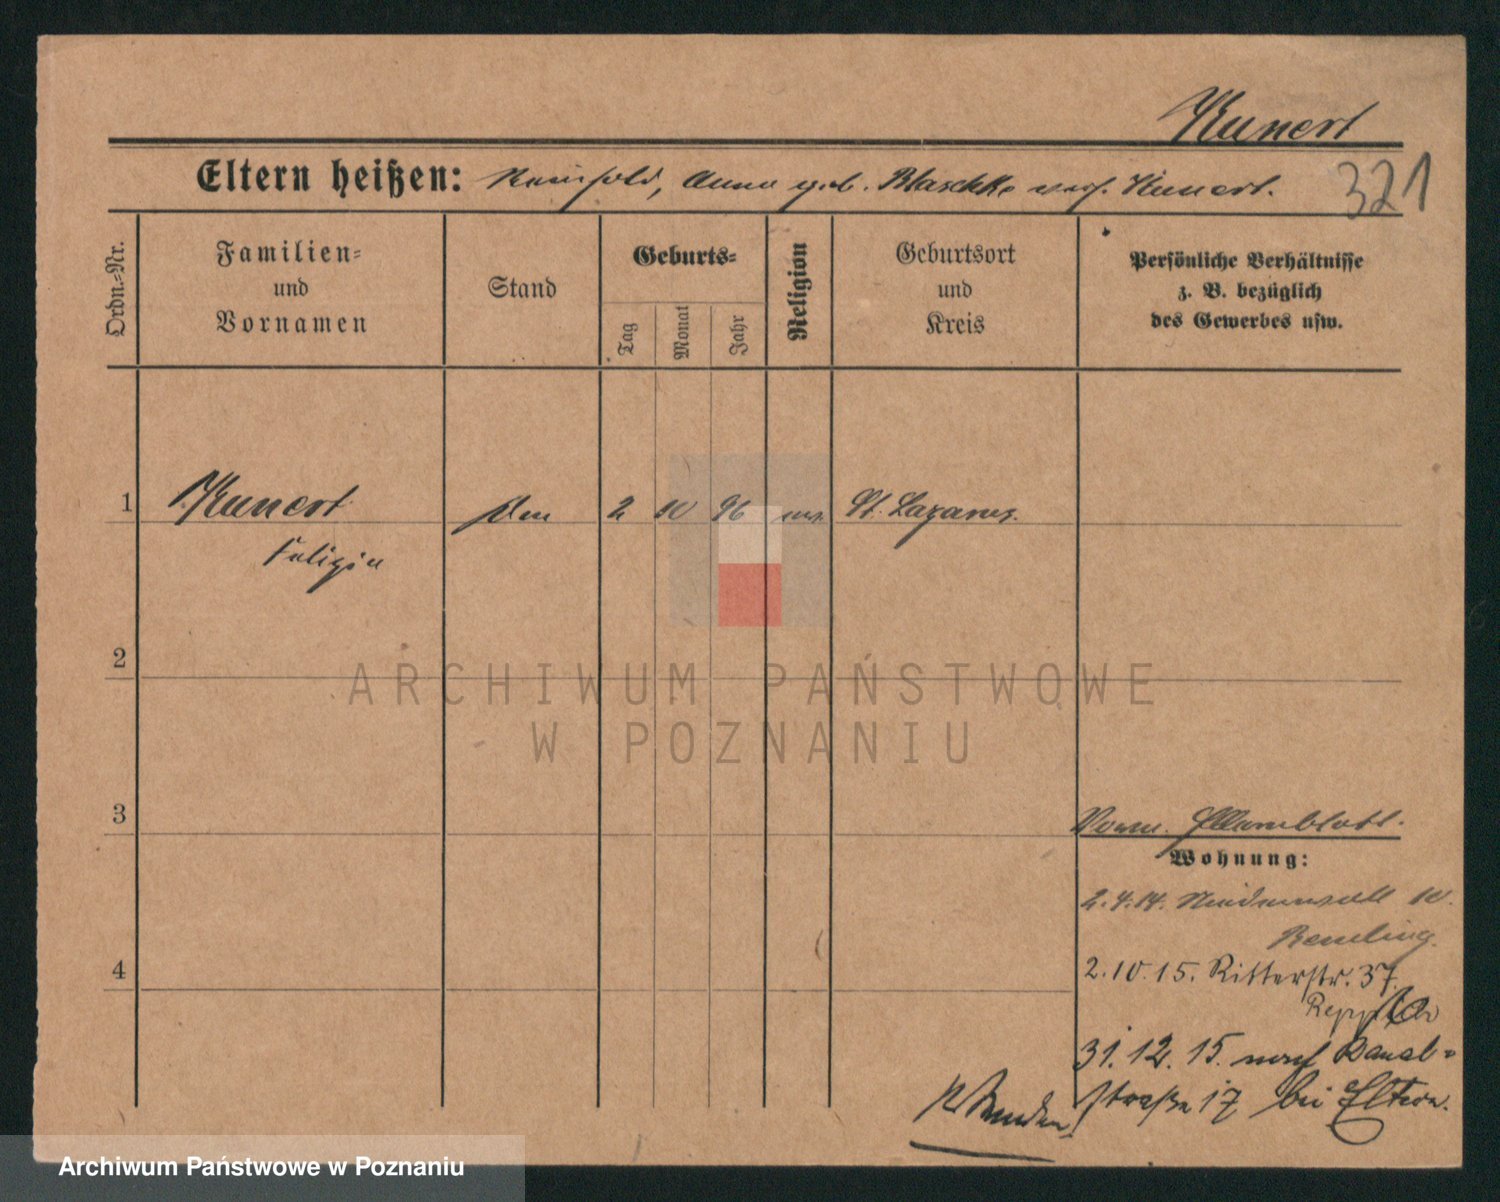 Kunert
Eltern heißen: Reinhold, Anna geb. Blaschke verh. Kunert.
321
Ordn.-Nr.
Familien-
und
Vornamen
Stand
Geburts-
Tag
Monat
Jahr
Religion
Geburtsort
und
Kreis
Persönliche Verhältnisse
z. B. bezüglich
des Gewerbes usw.
1
Kunert
2 10 96
St. Lazarus.
2
3
Wohnung:
2.4.14. 10.
4
2.10.15. Ritterstr. 37.
31.12.15. nach Kanal-
straße 17 bei Eltern.
ARCHIWUM PAŃSTWOWE
W POZNANIU
Archiwum Państwowe w Poznaniu